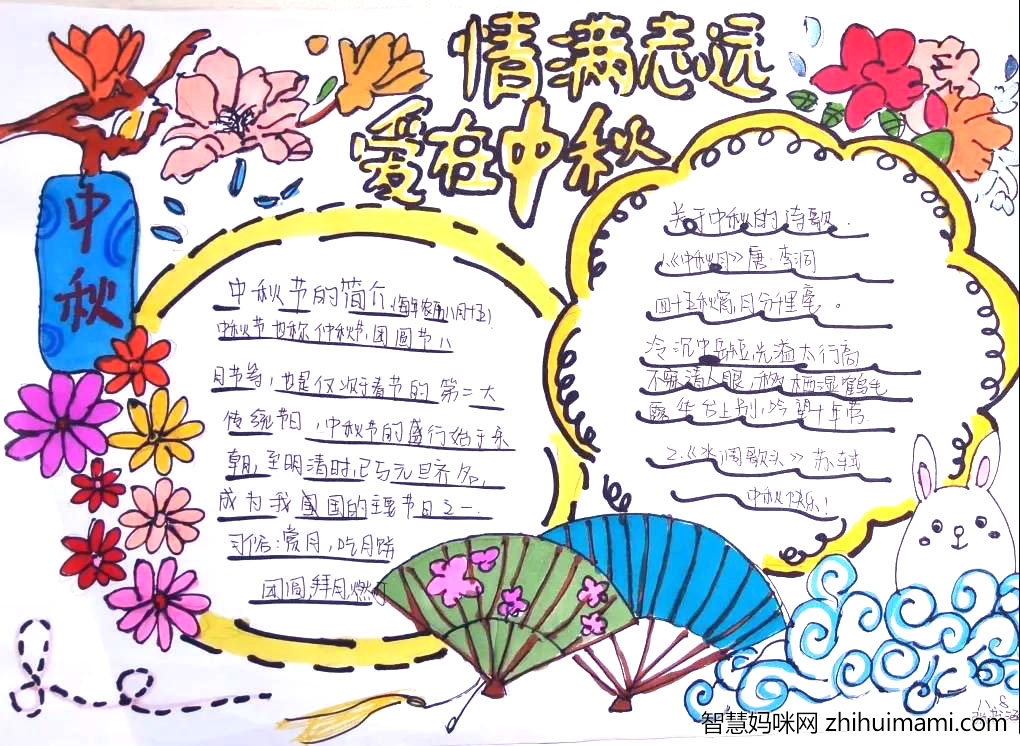 情满志远
爱在中秋
中秋
中秋节的简介(每年农历八月十五)
中秋节也称仲秋节,团圆节八
月节等,也是仅次于春节的第二大
传统节日,中秋节的盛行始于宋
朝,至明清时,已与元旦齐名,
成为我国的主要节日之一.
习俗:赏月,吃月饼
团圆,拜月,燃灯
关于中秋的诗歌.
1.《中秋月》唐·李洞
四十五秋宵,月分千里毫.
冷沉中岳短,光溢太行高
不寐清人眼,移栖湿鹤毛
露华台上别,吟望十年劳
2.《水调歌头》苏轼
中秋快乐!
智慧妈咪网 zhihuimami.com